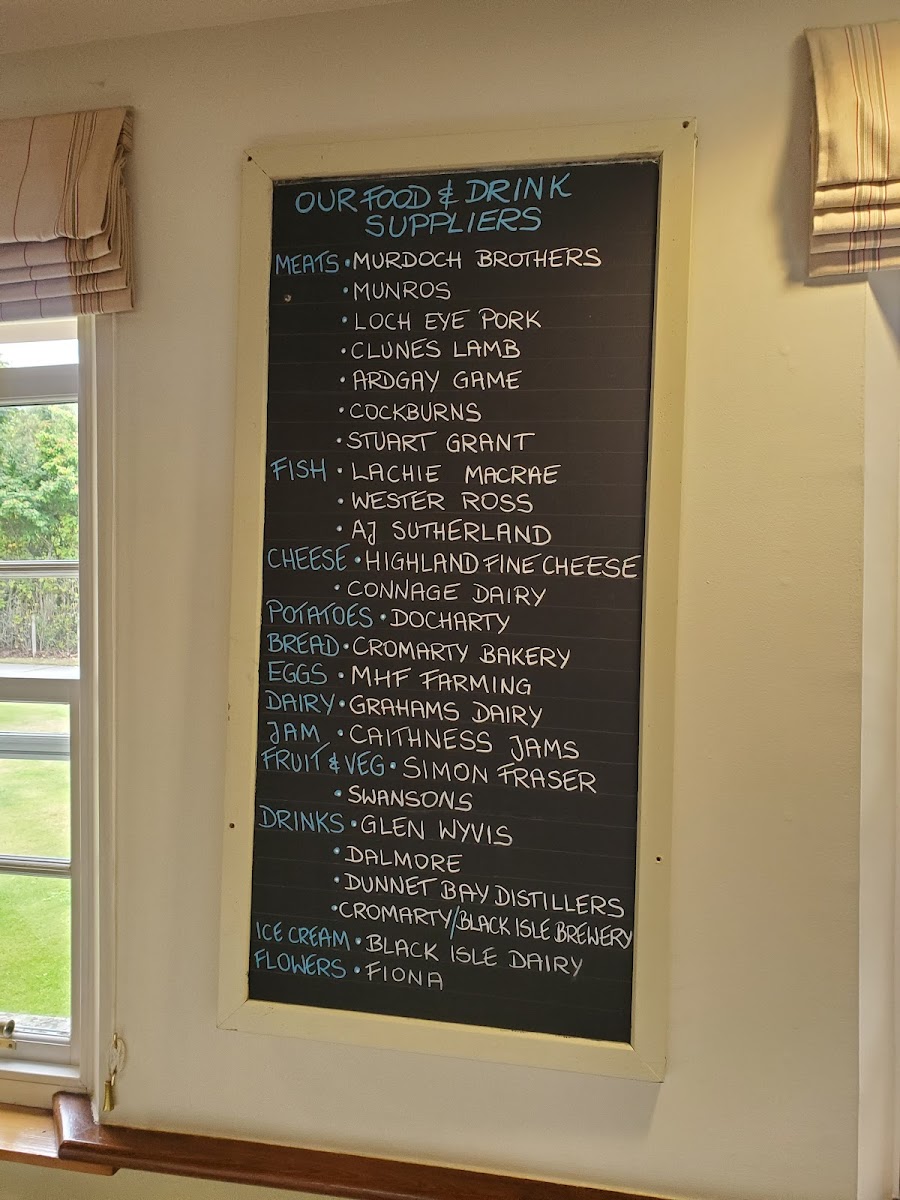 OUR FOOD & DRINK
SUPPLIERS
MEATS • MURDOCH BROTHERS
• MUNROS
• LOCH EYE PORK
• CLUNES LAMB
• ARDGAY GAME
• COCKBURNS
• STUART GRANT
FISH • LACHIE MACRAE
• WESTER ROSS
• AJ SUTHERLAND
CHEESE • HIGHLAND FINE CHEESE
• CONNAGE DAIRY
POTATOES • DOCHARTY
BREAD • CROMARTY BAKERY
EGGS • MHF FARMING
DAIRY • GRAHAMS DAIRY
JAM • CAITHNESS JAMS
FRUIT & VEG • SIMON FRASER
• SWANSONS
DRINKS • GLEN WYVIS
• DALMORE
• DUNNET BAY DISTILLERS
• CROMARTY/BLACK ISLE BREWERY
ICE CREAM • BLACK ISLE DAIRY
FLOWERS • FIONA